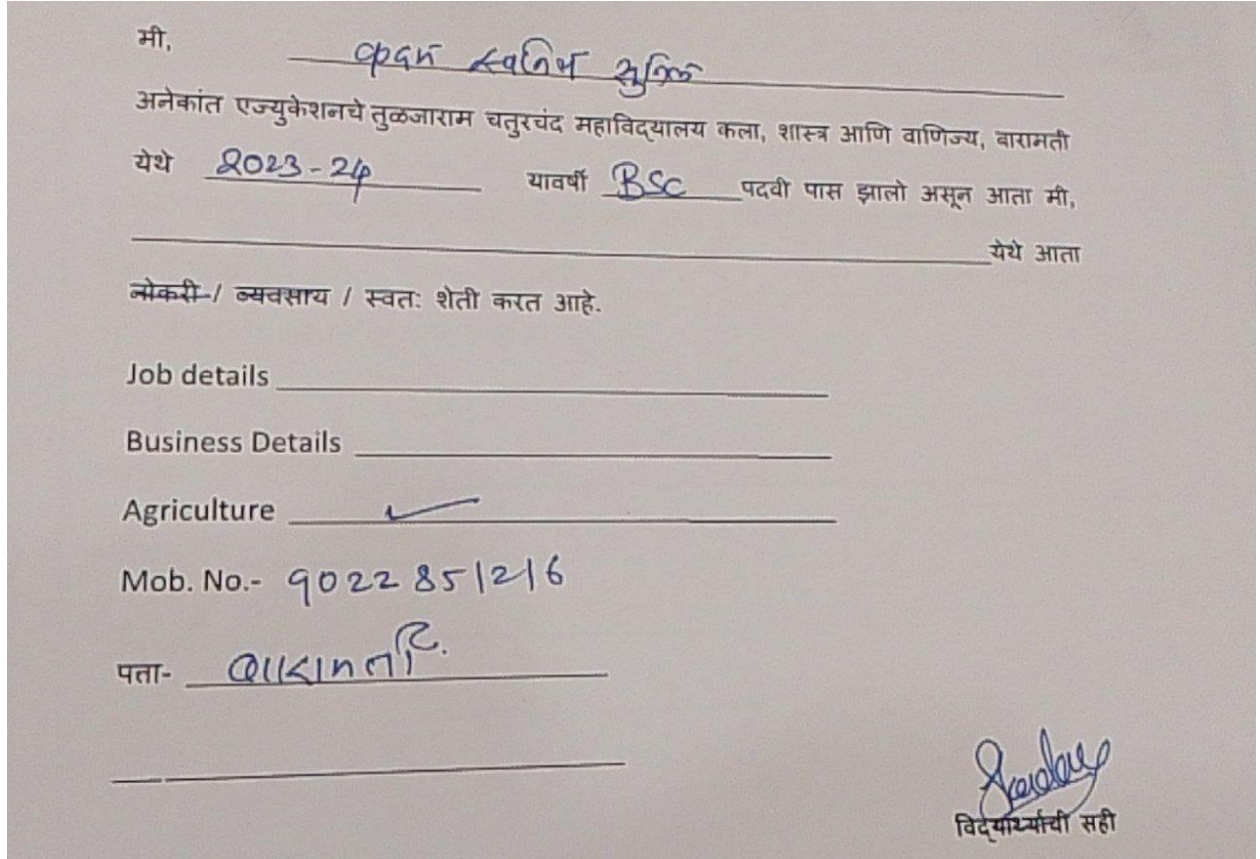 मी, कदम स्वनिम सुनिल
अनेकांत एज्युकेशनचे तुळजाराम चतुरचंद महाविद्यालय कला, शास्त्र आणि वाणिज्य, बारामती
येथे 2023-24 यावर्षी BSC पदवी पास झालो असून आता मी,
येथे आता
नोकरी / व्यवसाय / स्वतः शेती करत आहे.
Job details
Business Details
Agriculture ✓
Mob. No.- 9022851216
पता- बारामती.
विद्यार्थ्याची सही